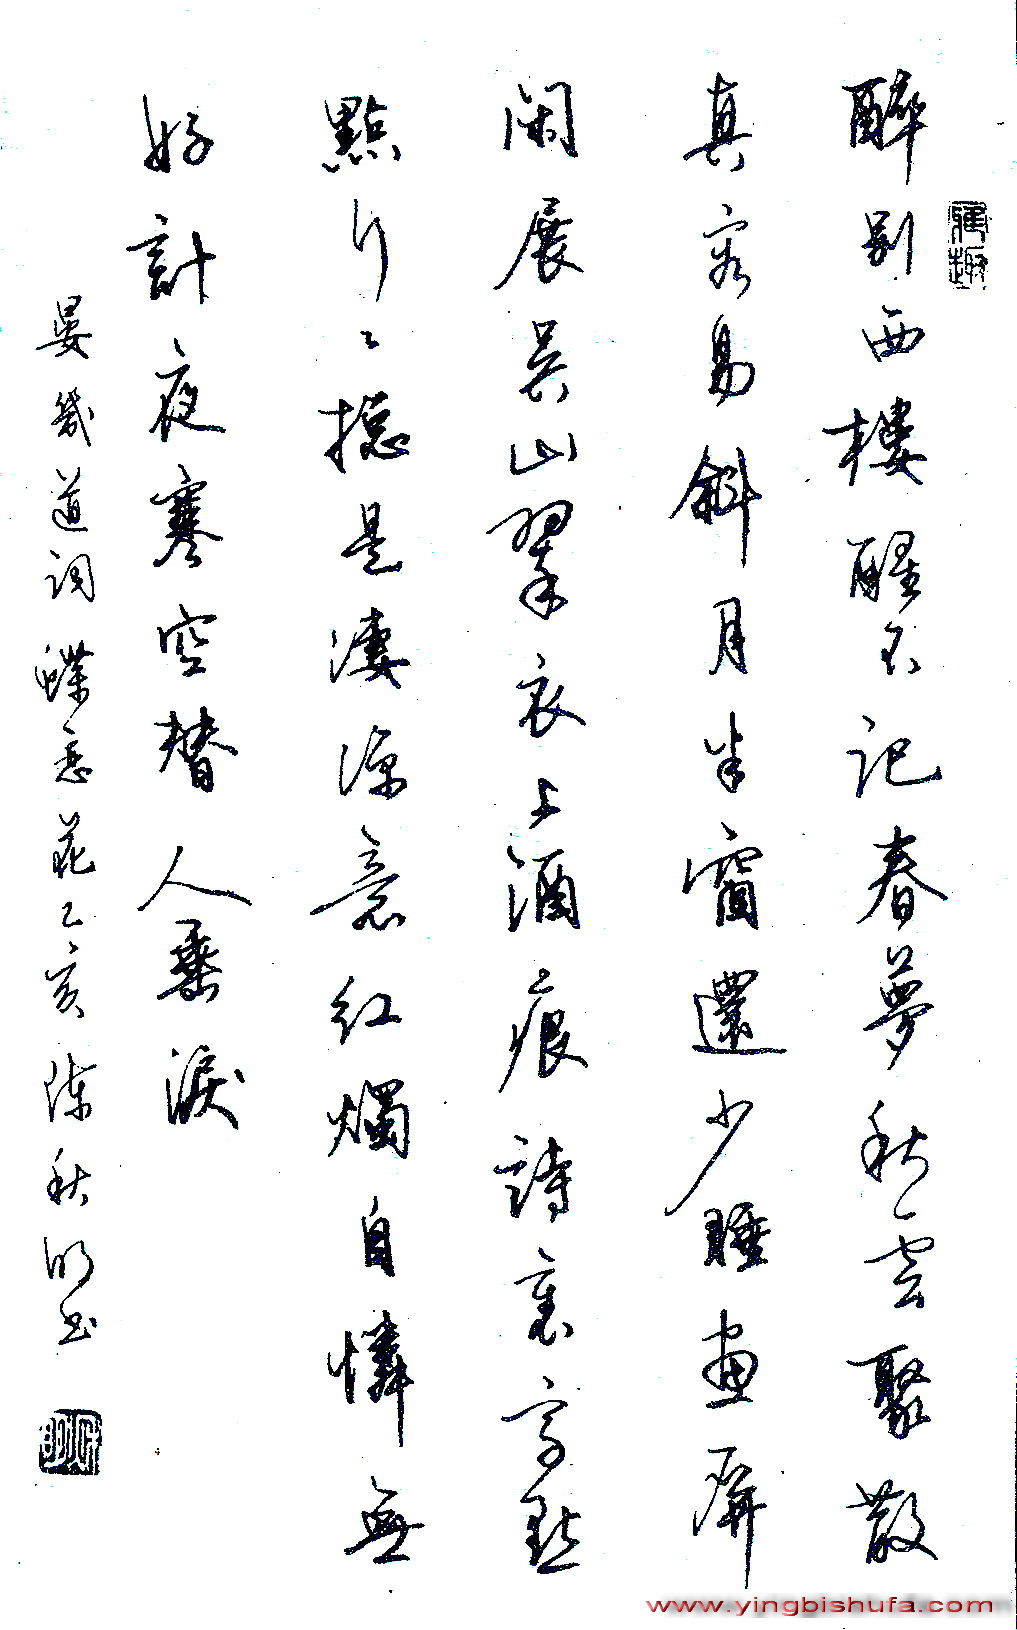 雅趣
醉别西樓醒不記春夢秋雲聚散
真容易斜月半窗還少睡畫屏
閑展吳山翠衣上酒痕詩裏字點
點行〻總是淒涼意紅燭自憐無
好計夜寒空替人垂淚
晏幾道詞蝶恋花乙亥陳秋明书
www.yingbishufa.com